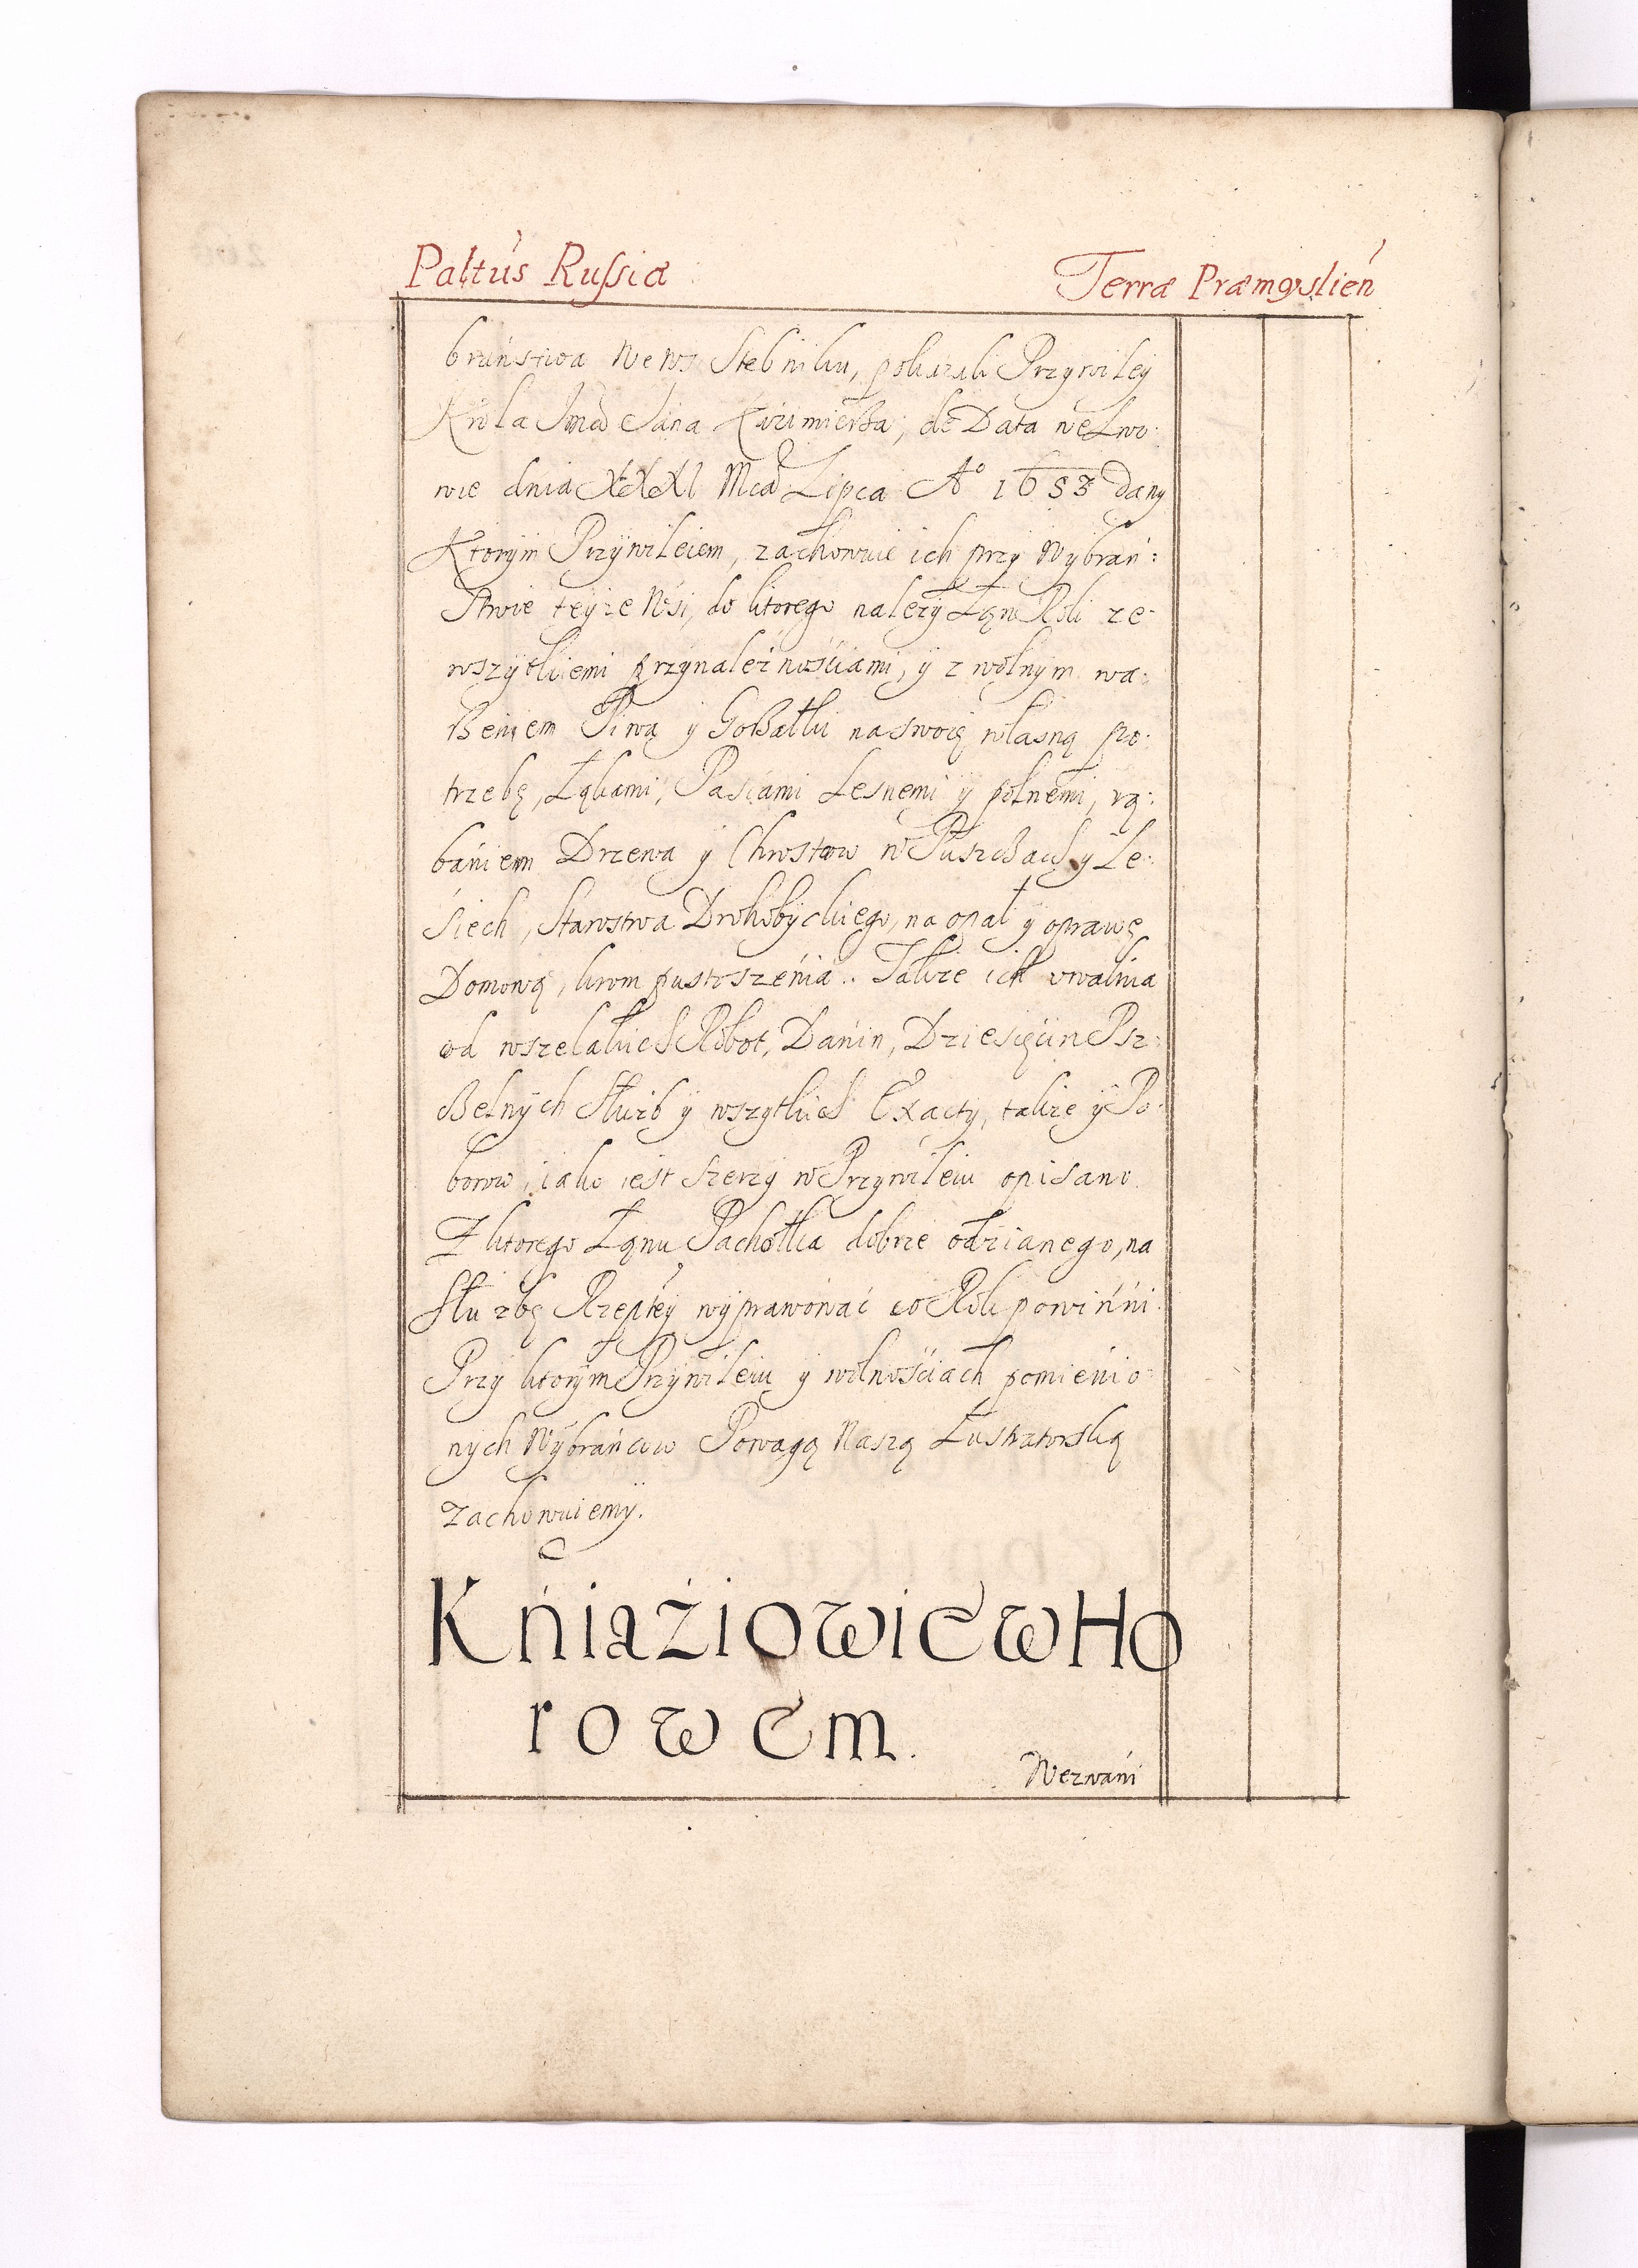 Paltus Russiæ
Terræ Præmysliен
bráństwa we Wsi Stebniku, pokazali Przywiley
Krola Jmci Jana Kazimierza, de Data we Lwo:
wie dnia XXXI Mca Lipca A° 1653 dany
Ktorym Przywileiem, zachowuie ich przy Wybrań:
stwie teyże Wsi, do ktorego należy Łąn Roli ze
wszytkiemi przynależnościami, y z wolnym wa:
rzeniem Piwa y Gorzałki na swoię własną po:
trzebę, Łąkami, Pasiami Lesnemi y polnemi, rą:
baniem Drzewa y Chrostow w Puszczach y Le:
śiech, Starostwa Drohobyckiego, na opał y oprawę
Domową, krom pustoszenia. Także ich uwalnia
od wszelakich Robot, Danin, Dzieśięćin Psz:
czelnych Służb y wszytkich Exacty, także y Po:
borow, iako iest szerzy w Przywileiu opisano.
Z ktorego Łąnu Pachołka dobrze odzianego, na
Służbę Rzeptey wyprawować co Rok powinni.
Przy ktorym Przywileiu y wolnośćiach pomienio:
nych Wybrańcow Powagą Naszą Lustratorską
Zachowuiemy.
Kniaźiowie w Ho
rowem.
Wezwani